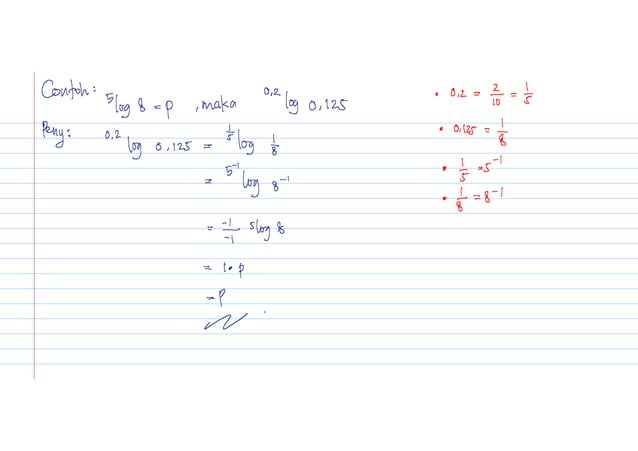 Contoh: ⁵log 8 = p , maka ⁰,²log 0,125
Peny: ⁰,²log 0,125 = ^(1/5)log 1/8
= ^(5⁻¹)log 8⁻¹
= -1/-1 ⁵log 8
= 1 • p
= p
• 0,2 = 2/10 = 1/5
• 0,125 = 1/8
• 1/5 = 5⁻¹
• 1/8 = 8⁻¹